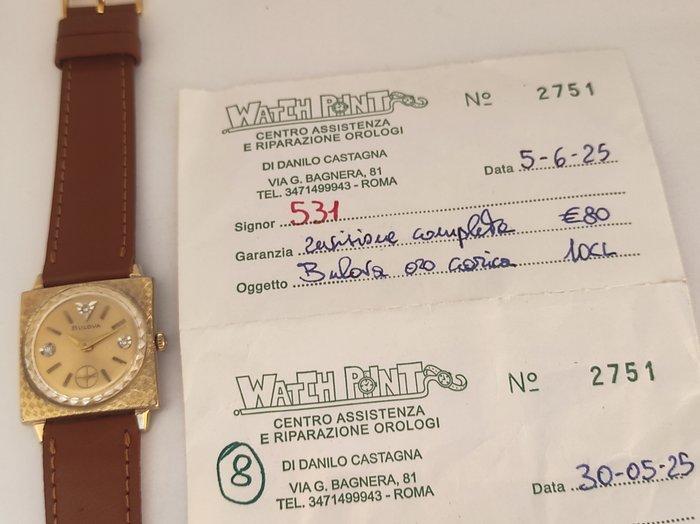 WATCH POINT
Nº 2751
CENTRO ASSISTENZA
E RIPARAZIONE OROLOGI
DI DANILO CASTAGNA
VIA G. BAGNERA, 81
TEL. 3471499943 - ROMA
Data 5-6-25
Signor 531
Garanzia revisione completa €80
Oggetto Bulova oro carica
BULOVA
WATCH POINT
Nº 2751
CENTRO ASSISTENZA
E RIPARAZIONE OROLOGI
8
DI DANILO CASTAGNA
VIA G. BAGNERA, 81
TEL. 3471499943 - ROMA
Data 30-05-25